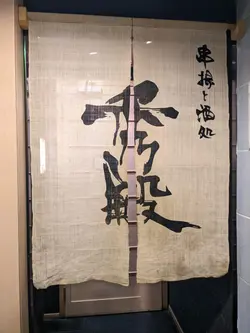 串揚と酒処
秀殿